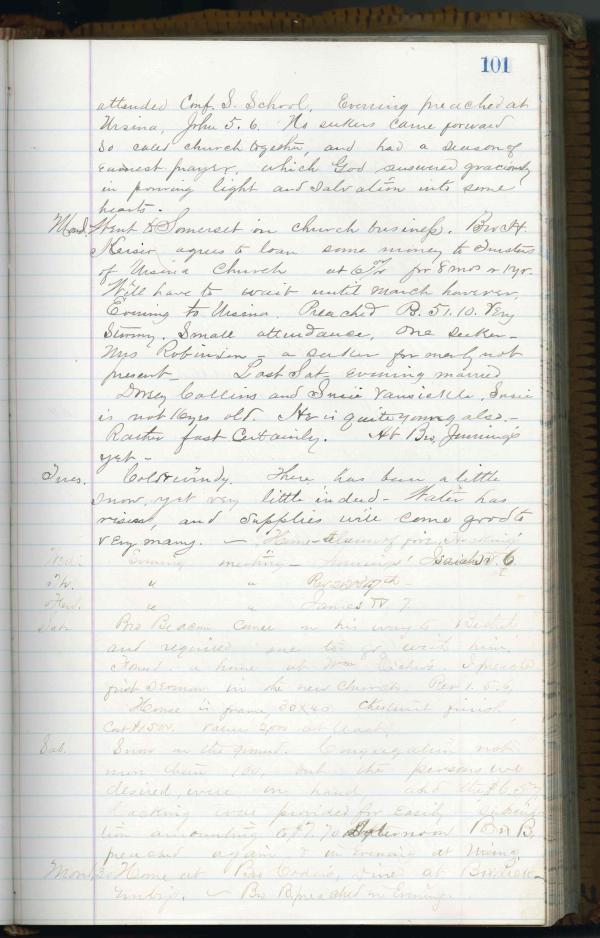 101
attended Conf. S. School. Evening preached at
Ursina, John 5. 6. No seekers came forward
So called church together, and had a season of
earnest prayer, which God answered graciously
in pouring light and salvation into some
hearts.
Mond. Went to Somerset on church business. Bro. H.
agrees to loan some money to Trustees
of Ursina Church at 6% for 8 mos or 1 yr.
Will have to wait until March however.
Evening to Ursina. Preached Ps. 51. 10. Very
Stormy. Small attendance, one seeker -
Mrs Robinson - a seeker formerly not
present - Last Sat - evening married
Dorsey Collins and Susie Vansickle, Susie
is not 16 yrs old. He is quite young also. -
Rather fast certainly. At Bro. Jennings
yet -
Tues. Cold & windy. There has been a little
snow, yet very little indeed - Water has
risen, and supplies will come good to
very many. -
Wed. Evening meeting - Isaiah 6
Th. " "
" " James IV. 7
Sat. Bro Beacom came on his way to Bethel
and required me to go with him.
Found a home at Wm I preached
first sermon in the new church. Rev 1. 5. 6.
House is frame, 30x40 chestnut finish,
Cost $1500. Value 2,000 at least.
Sab. Snow on the ground. Congregation not
more than 100, but the persons we
desired, were on hand, and the
lacking were provided for easily
amounting to $7.70 Afternoon Bro B.
preached again & in evening at
Mond. Home at Bro dined at
- Bro B preached in Evening.